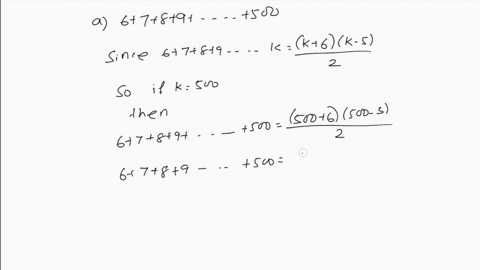 a) 6+7+8+9+ ----- +500
Since 6+7+8+9 ---- k = (k+6)(k-5)/2
So if k=500
then
6+7+8+9+ --- +500 = (500+6)(500-5)/2
6+7+8+9 --- +500 =